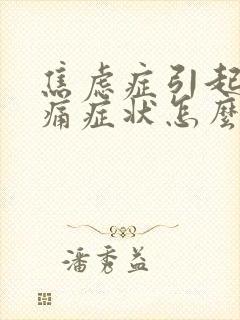 焦虑症引起
痛症状怎麼
潘秀益